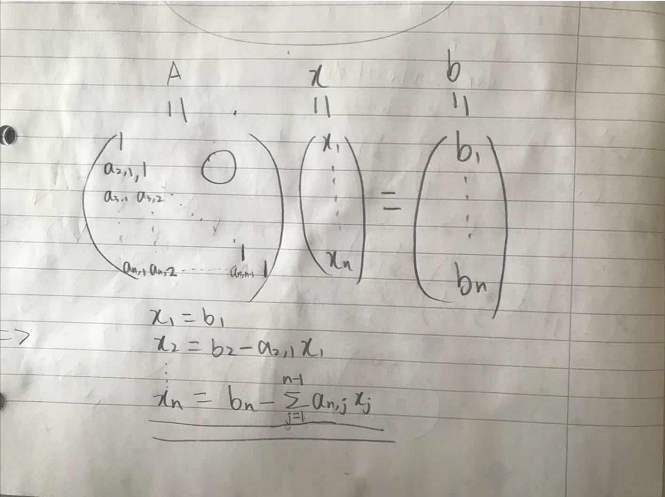 A x b
|| || ||
( 1 ) ( x₁ ) = ( b₁ )
a₂,₁ 1 0
a₃,₁ a₃,₂ ⋱ ⋮ ⋮
⋮ ⋮ 1
aₙ,₁ aₙ,₂ ⋯ aₙ,ₙ₋₁ 1 xₙ bₙ
x₁ = b₁
=> x₂ = b₂ - a₂,₁ x₁
⋮
xₙ = bₙ - Σ_{j=1}^{n-1} aₙ,ⱼ xⱼ